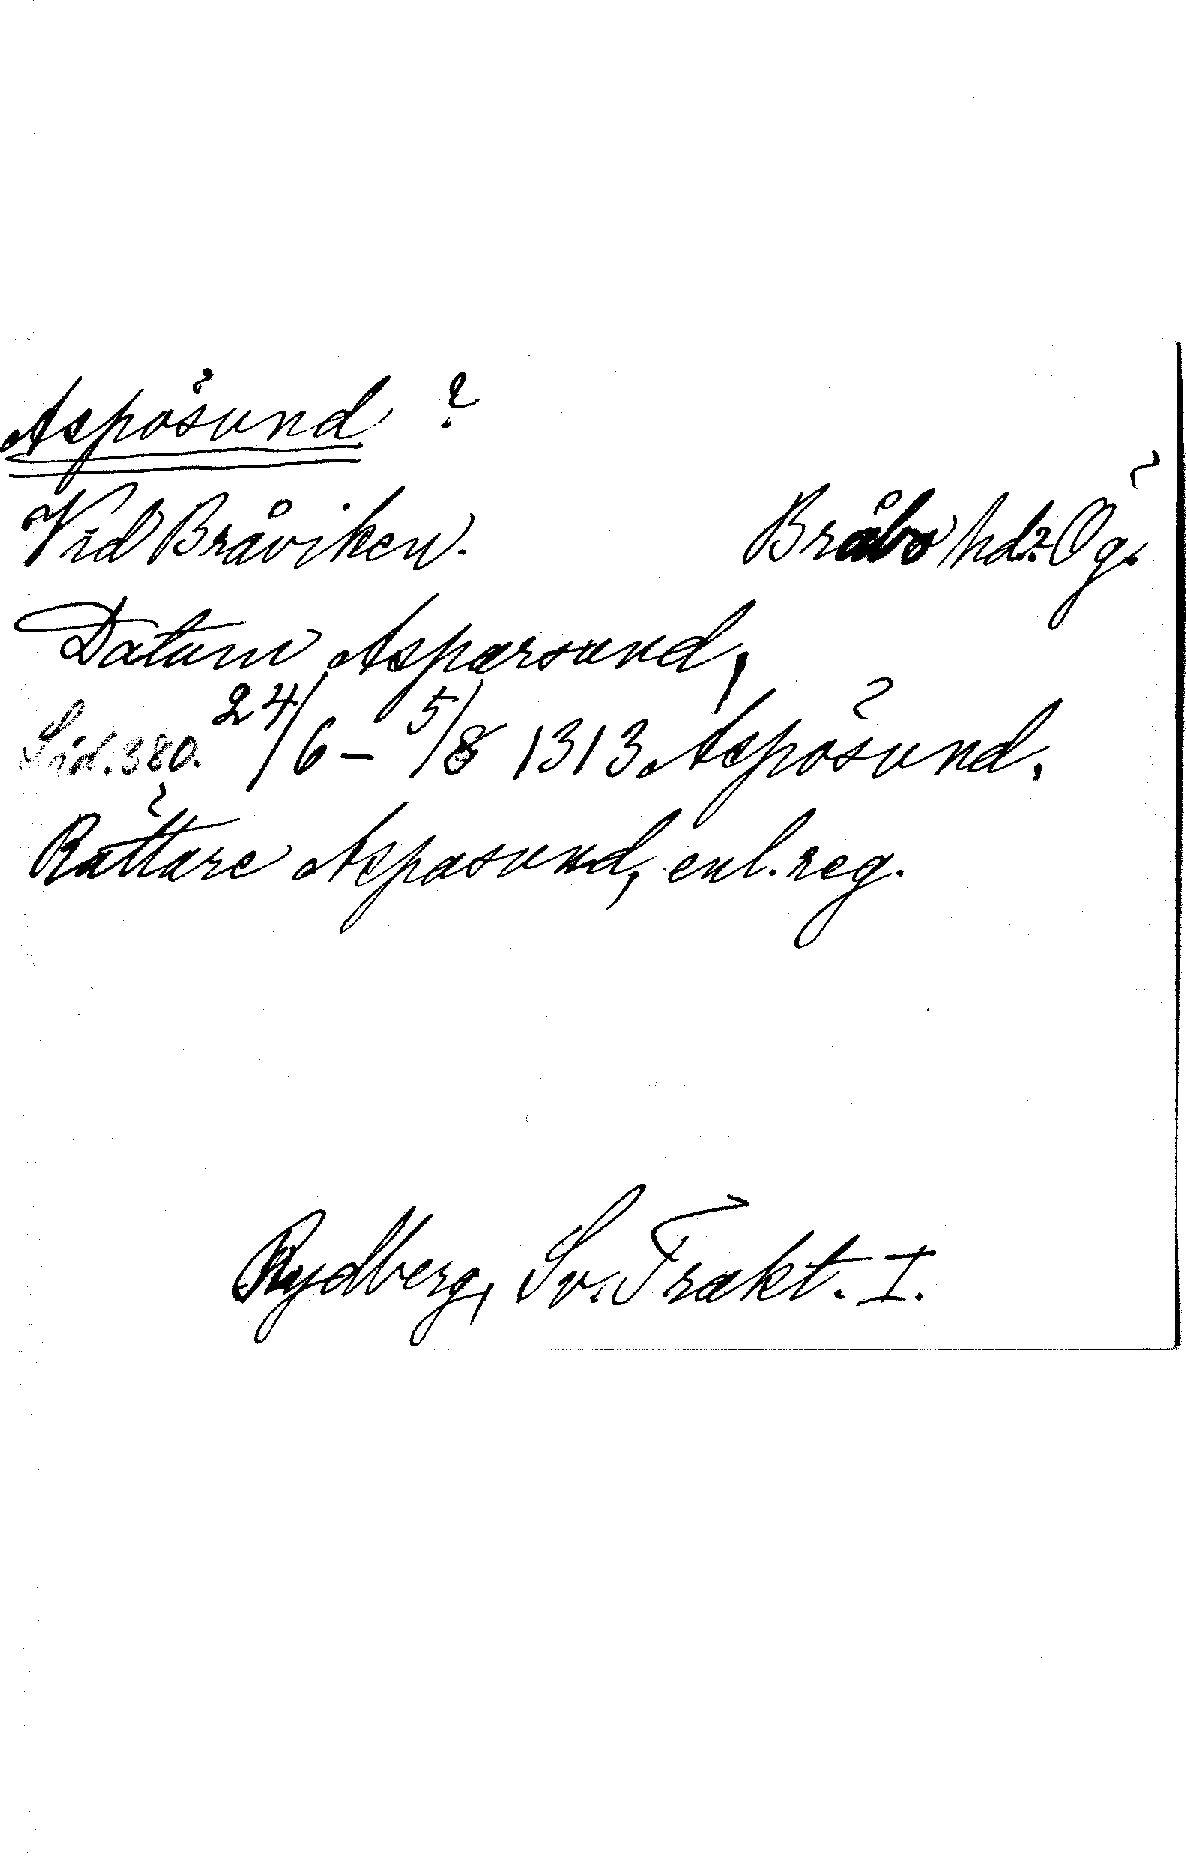 Aspösund ?
Vid Bråviken. Bråbo hd. Ög.
Datum Asparsund,
Sid. 380. 24/6 - 5/8 1313 Aspösund.
Rättare Aspasund, enl. reg.
Rydberg, Sv. Trakt. I.